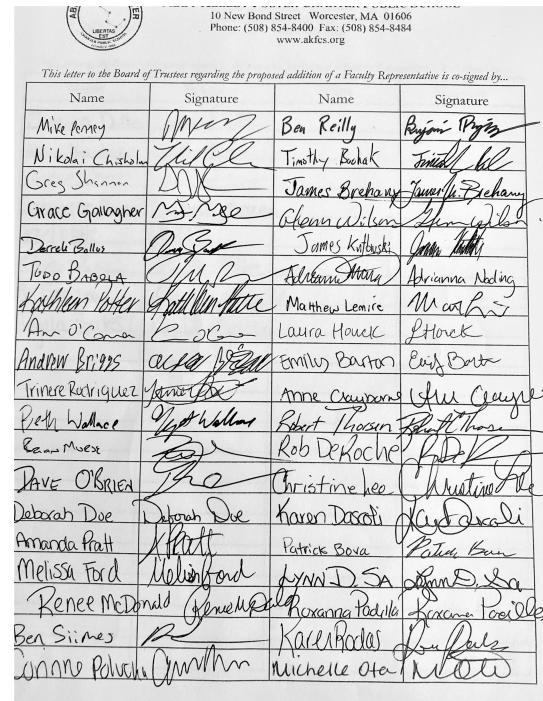 LIBERTAS
EST
10 New Bond Street Worcester, MA 01606
Phone: (508) 854-8400 Fax: (508) 854-8484
www.akfcs.org
This letter to the Board of Trustees regarding the proposed addition of a Faculty Representative is co-signed by...
Name Signature Name Signature
Mike Penney Ben Reilly
Nikolai Chisholm Timothy Bochak
Greg Shannon James Brehany James M. Brehany
Grace Gallagher Glenn Wilson Glenn Wilson
Derrek Ballos James Kutkowski
TODD BABOLA Adrianna Noding
Kathleen Potter Matthew Lemire
Ann O'Connor Laura Houck LHouck
Andrew Briggs Emily Barton Emily Barton
Trinere Rodriguez Anne Clayborne
Beth Wallace Robert Thorsen
Rob DeRoche
DAVE O'BRIEN Christine Lee Christine Lee
Deborah Doe Deborah Doe Karen Dascoli
Amanda Pratt Patrick Bova
Melissa Ford Melissa Ford LYNN D. SA Lynn D. Sa
Renee McDonald Roxanna Padilla
Ben Siimes Karen Rodas
Michelle